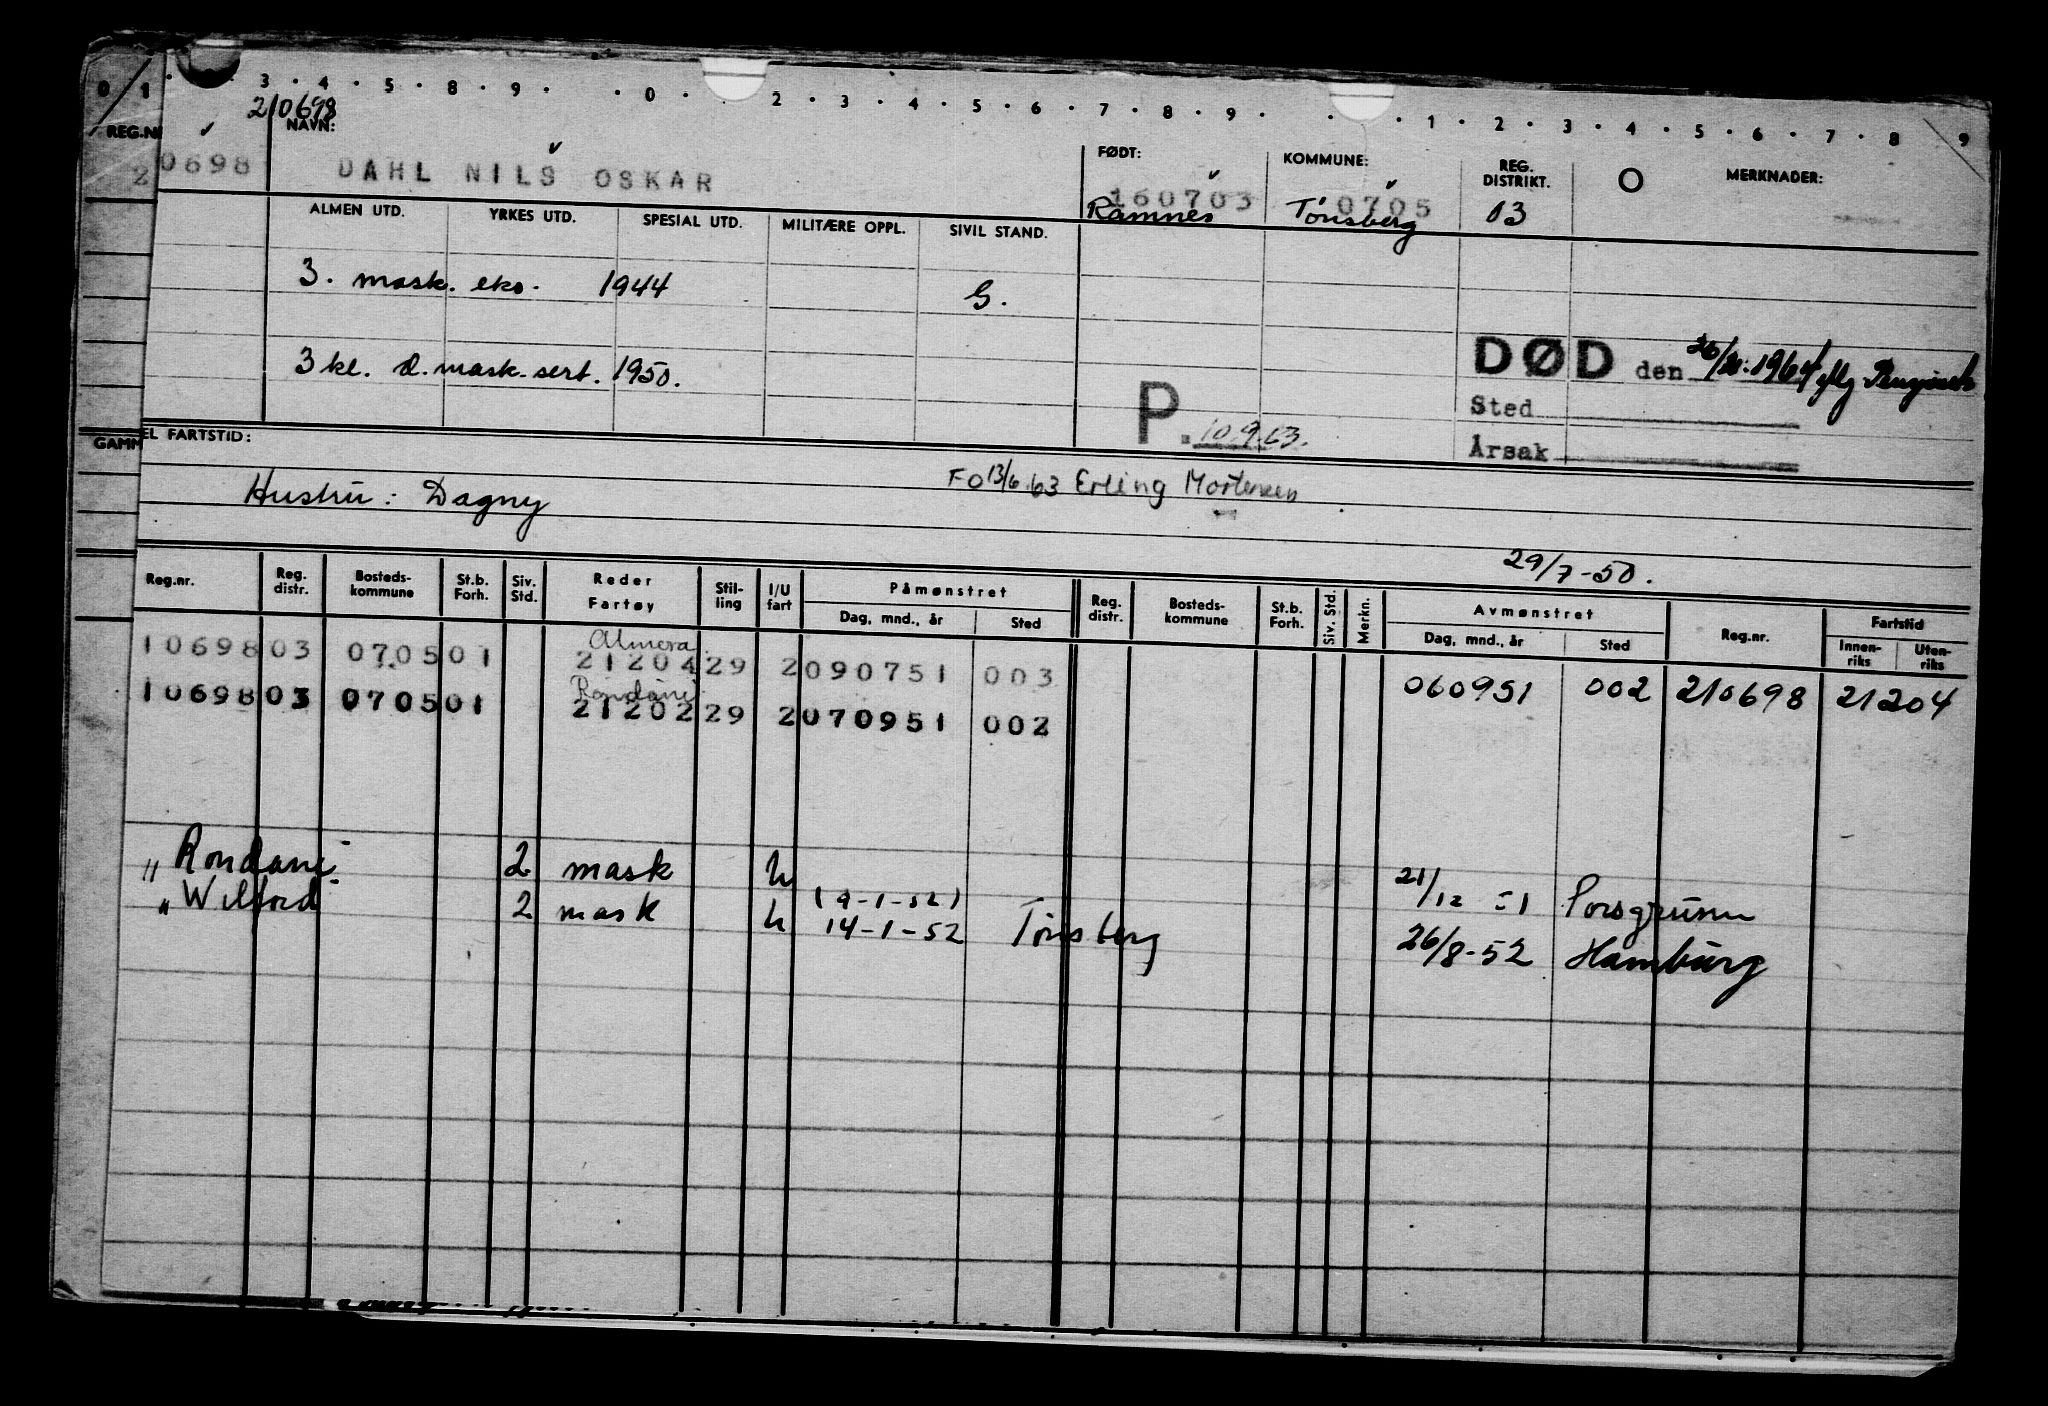 0 1 3 · 4 · 5 · 8 · 9 · · 0 · 2 · 3 · 4 · 5 · 6 · 7 · 8 · 9 · · 1 · 2 · 3 · 4 · 5 · 6 · 7 · 8 9
210698
REG.N NAVN: FØDT: KOMMUNE: REG. DISTRIKT. O MERKNADER:
2 0698 DAHL NILS OSKAR 160703 0705
Ramnes Tønsberg 03
ALMEN UTD. YRKES UTD. SPESIAL UTD. MILITÆRE OPPL. SIVIL STAND.
3. mask. eks. 1944 G.
DØD den 1964
3 kl. d. mask. sert. 1950.
Sted
P. 10.9.63.
Årsak
GAMM EL FARTSTID:
Hustru: Dagny FO 13/6.63 Erling Mortensen
29/7-50.
Reg.nr. Reg. distr. Bosteds- kommune St.b. Forh. Siv. Std. Reder Fartøy Stil- ling I/U fart Påmønstret Reg. distr. Bosteds- kommune St.b. Forh. Siv. Std. Merkn. Avmønstret Reg.nr. Fartstid
Dag, mnd., år Sted Dag, mnd., år Sted Innen- riks Uten- riks
Almora
10698 03 0705 01 21204 29 2 090751 003 060951 002 210698 21204
Rondane
10698 03 0705 01 21202 29 2 070951 002
" Rondane 2 mask u 21/12 51 Porsgrunn
(9-1-52)
" Wilford 2 mask u 14-1-52 Tønsberg 26/8-52 Hamburg